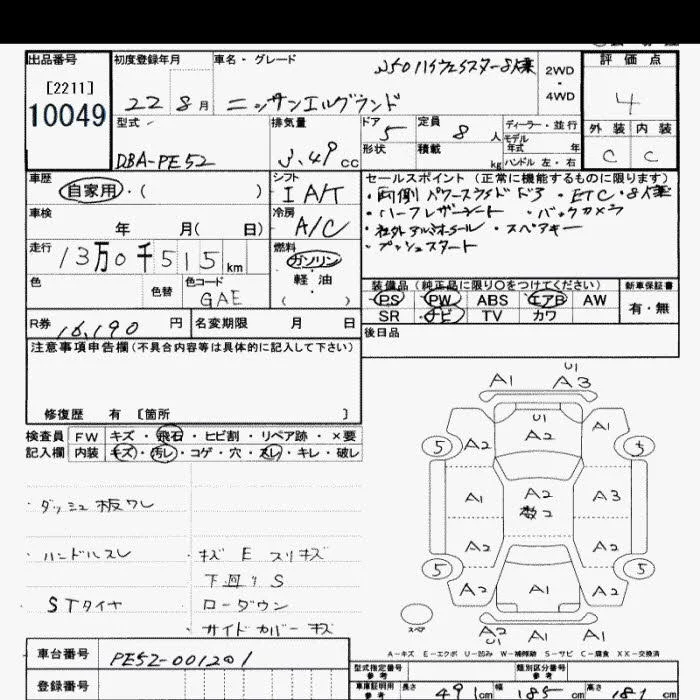 出品番号 初度登録年月 車名・グレード 評価点
[2211]
10049
250ハイウェイスター8人乗
22年 8月 ニッサンエルグランド
2WD
・
4WD
4
外装 内装
C C
型式 排気量 ドア 定員 ディーラー・並行
DBA-PE52 3.49cc 5 8人
形状 積載 kg
モデル年式 年
ハンドル 左・右
車歴 シフト セールスポイント(正常に機能するものに限ります)
自家用・( ) I A/T
・両側パワースライドドア ・ETC・8人乗
・ハーフレザーシート ・バックカメラ
・社外アルミホイール ・スペアキー
・プッシュスタート
車検 年 月( 日) 冷房 A/C
走行 13万0千515km 燃料 ガソリン
・
軽油
( )
色 色替 色コード GAE
装備品(純正品に限り○をつけてください) 新車保証書
PS PW ABS エアB AW 有・無
SR ナビ TV カワ
R券 16,190円 名変期限 月 日 後日品
注意事項申告欄(不具合内容等は具体的に記入して下さい)
修復歴 有 [箇所 ]
検査員 FW キズ・飛石・ヒビ割・リペア跡・×要
記入欄 内装 キズ・汚レ・コゲ・穴・スレ・キレ・破レ
・ダッシュ板ワレ
・ハンドルスレ ・キズ E スリキズ
下廻り S
・STタイヤ ローダウン
・サイドカバーキズ
U1
A1 A3
U1
A2
A2 A1
5 5
A1 A2 A3
数2
A2 A2
5 5
A2 A1 A2
スペア
A2 U1 A1
A-キズ E-エクボ U-凹み W-補修跡 S-サビ C-腐食 XX-交換済
車台番号 PE52-001201
登録番号
型式指定番号 参考 類別区分番号 参考
車庫証明用 参考 長さ 491cm 幅 185cm 高さ 181cm